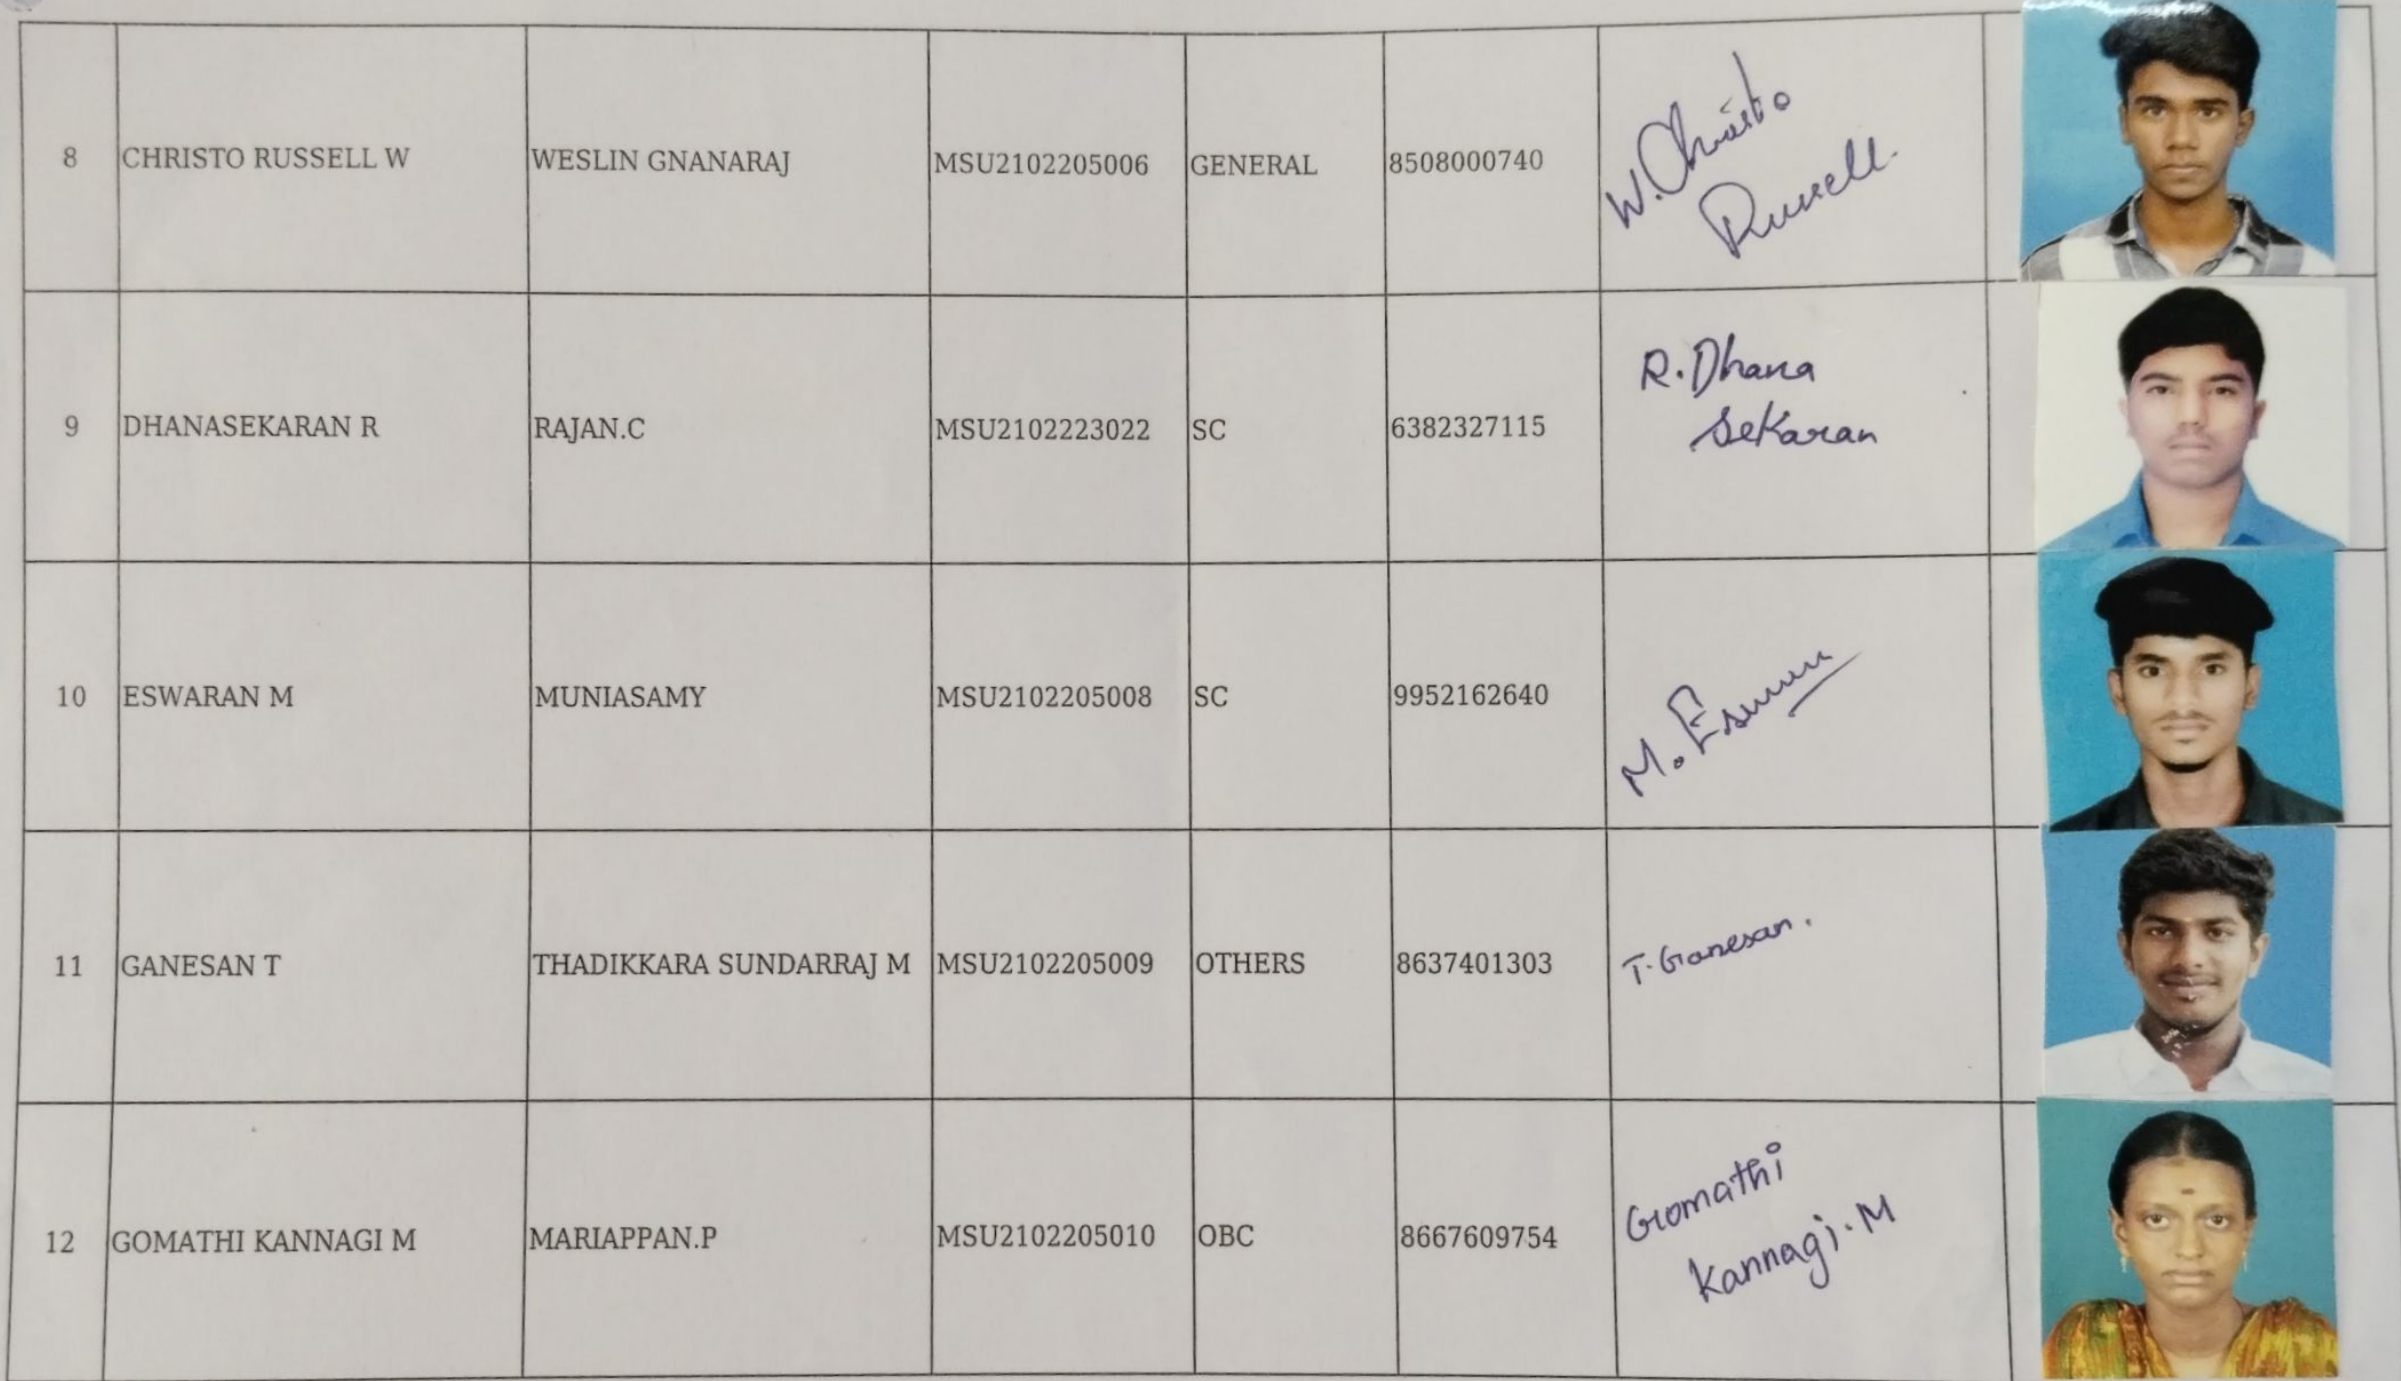 8 CHRISTO RUSSELL W WESLIN GNANARAJ MSU2102205006 GENERAL 8508000740 W. Christo
Russell.
9 DHANASEKARAN R RAJAN.C MSU2102223022 SC 6382327115 R. Dhana
Sekaran
10 ESWARAN M MUNIASAMY MSU2102205008 SC 9952162640 M.
11 GANESAN T THADIKKARA SUNDARRAJ M MSU2102205009 OTHERS 8637401303 T. Ganesan.
12 GOMATHI KANNAGI M MARIAPPAN.P MSU2102205010 OBC 8667609754 Gomathi
Kannagi. M